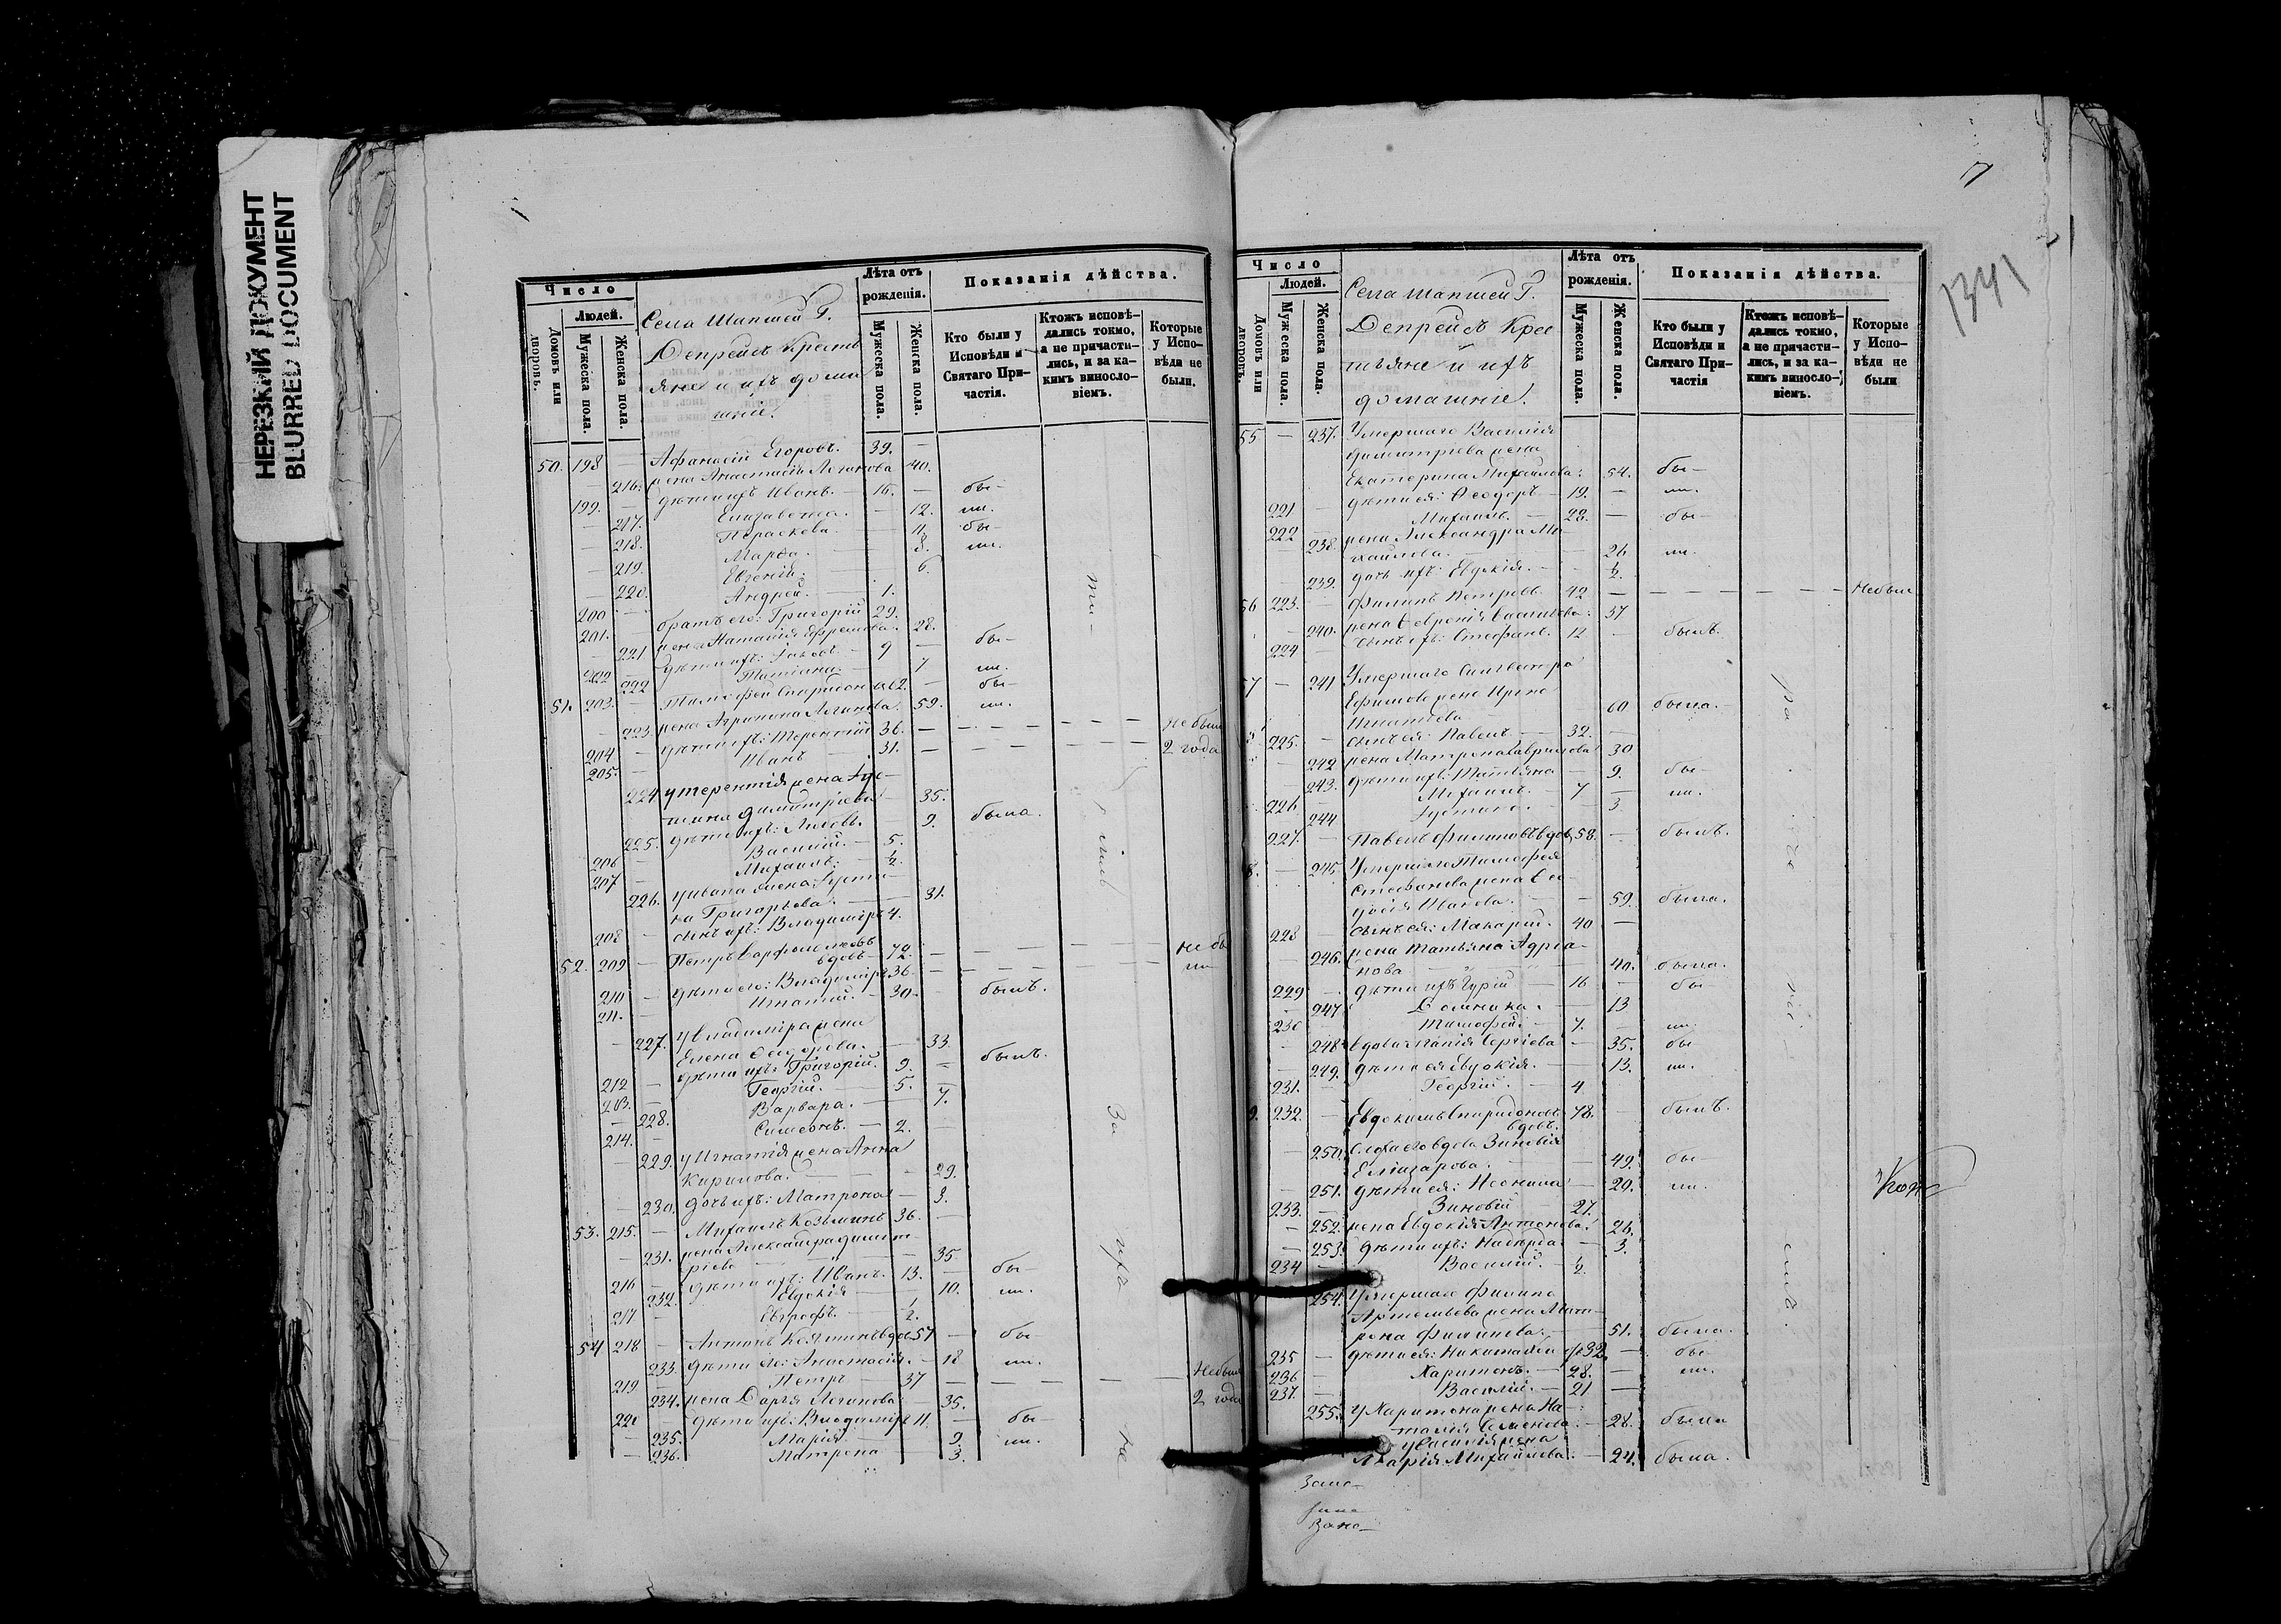 НЕРЕЗКИЙ ДОКУМЕНТ
BLURRED DOCUMENT
Число
Людей.
Домовъ или дворовъ.
Мужеска пола.
Женска пола.
Села Шапшей Г.
Депрейсъ Кресть
яне и ихъ дома
шніе.
Лѣта отъ рожденія.
Мужеска пола.
Женска пола.
Показанія дѣйства.
Кто были у Исповѣди и Святаго Причастія.
Ктожъ исповѣ-
дались токмо,
а не причасти-
лись, и за ка-
кимъ винosло-
віемъ.
Которые
у Испо-
вѣди не
были.
50. 198 — Афанасій Егоровъ. 39. —
— 216. жена Анастасія Логинова 40.
199. — дѣти ихъ Иванъ. — 16. — бы-
— 217. Елизавета. — 12. ли.
— 218. Параскева. — 11. бы-
— 219. Марфа. — 8. ли.
— 220. Евгенія. — 6.
200 — Андрей. 1.
201. — братъ его: Григорій 29.
— 221 жена Наталія Ефремова. 28.
222 дѣти ихъ: Іаковъ. — 9 — бы-
222 Татіана. — 7 ли.
51. 203. — Тимофей Спиридоновъ 62. — бы-
— 223. жена Агрипина Логинова. 59. ли.
204 — дѣти ихъ: Терентій 36. — не были
205. — Иванъ 31. — 2 года
224 у Терентія жена Іус-
тина Димитріева — 35.
225. дѣти ихъ: Любовь. — 9. была.
206 — Василій. — 5.
207 — Михаилъ. — ½.
226. у Ивана жена Іусти-
на Григорьева. — 31.
208 — сынъ ихъ: Владиміръ 4.
52. 209 — Петръ Варфоломеевъ
вдовъ — 72. — не бы
210 — дѣти его: Владиміръ 36. — ли
211. — Игнатій. — 30. — былъ.
— 227. у Владиміра жена
Елена Ѳеодорова. — 33
212 — дѣти ихъ: Григорій. 9. — былъ.
213. — Георгій. — 5. —
— 228. Варвара. — 7.
214. — Симеонъ. — 2. —
— 229. у Игнатія жена Анна
Кирилова. — 29.
— 230. дочь ихъ: Матрона — 3.
53. 215. — Михаилъ Козьминъ 36. —
— 231. жена Александра Димит-
ріева — 35
216 — дѣти ихъ: Иванъ. 13. — бы-
232. Евдокія — 10. ли.
217 — Евграфъ. — ½.
54 218 — Антонъ Козминъ вдов. 57 — бы-
233. дѣти его: Анастасія. — 18 ли.
219 — Петръ — 37 — Не были
234. жена Дарья Логинова 35. 2 года
220 — дѣти ихъ: Владиміръ 11. — бы-
— 235. Марія — 9 ли.
— 236. Матрена 3.
За ихъ
7
1341
Число
Людей.
Домовъ или дворовъ.
Мужеска пола.
Женска пола.
Села Шапшей Г.
Депрейсъ Крес
тьяне и ихъ
домашніе.
Лѣта отъ рожденія.
Мужеска пола.
Женска пола.
Показанія дѣйства.
Кто были у Исповѣди и Святаго Причастія
Ктожъ исповѣ-
дались токмо,
а не причасти-
лись, и за ка-
кимъ виносло-
віемъ.
Которые
у Испо-
вѣди не
были
55 — 237. Умершаго Василія
Димитріева жена
Екатерина Михайлова. 54. бы-
221 — дѣти ея: Ѳеодоръ 19. — ли.
222 Михаилъ. — 22. — бы-
238. жена Александра Ми-
хайлова. — 21 ли.
— 239. дочь ихъ: Евдокія. — ½.
56 223. — Филипъ Петровъ. 42 — Не были
— 240. жена Февронія Васильева. 37
224 — сынъ ихъ: Стефанъ. 12 — былъ.
57 — 241 Умершаго Сильвестра
Ефимова жена Ирина
Игнатіева — 60 была.
225. — сынъ ея: Павелъ — 32. —
— 242 жена Матрона Гаврилова 30
243. дѣти ихъ: Татіана — 9. бы-
226 — Михаилъ. — 7 — ли.
244 Іустина. — 3
227. — Павелъ Филиповъ вдов. 58. — былъ.
8. — 245. Умершаго Тимофея
Стефанова жена Ѳео-
досія Иванова. — 59. была.
228 — сынъ ея: Макарій. 40 —
— 246. жена Татьяна Адріа-
нова — 40. была.
229 — дѣти ихъ Гурій — 16 — бы
— 247 Домника. — 13
230 Тимофей. — 7. — ли.
— 248. вдова Сергіева — 35. бы
— 249. дѣти ея Евдокія. — 13. ли.
231. — Георгій. — 4
9. 232. — Евдокимъ Спиридоновъ 78. — былъ.
вдовъ.
— 250. сноха его вдова Зиновія
Еліазарова. — 49. бы-
— 251. дѣти ея: Неонила — 20. ли.
233. — Зиновій — 27.
— 252. жена Евдокія Антонова. 26.
— 253. дѣти ихъ: Надежда — 3.
234 — Василій. — ½
254. Умершаго Филипа
Артемьева жена Мат-
рона Филипова. — 51. была.
235 — дѣти ея: Никита 32. — бы-
236 — Харитонъ. — 28. — ли.
237. — Василій. — 21 —
255. у Харитона жена На-
талія Семенова. — 28. была
у Василія жена
Марія Михайлова. — 24. была.